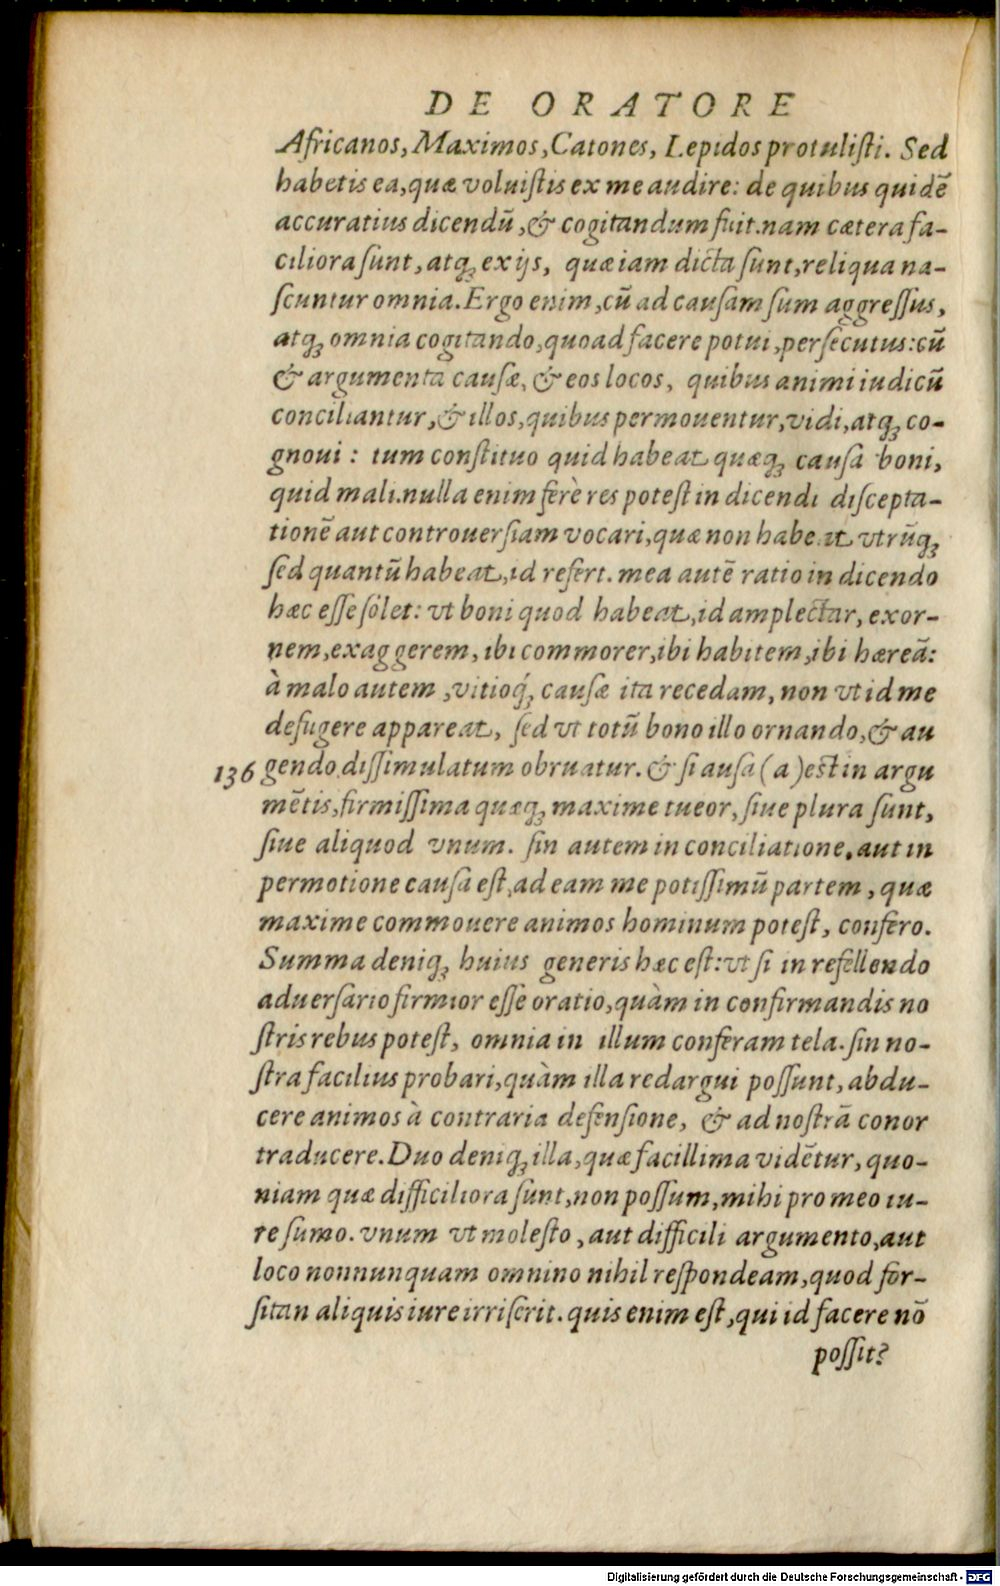 DE ORATORE
Africanos, Maximos, Catones, Lepidos protulisti. Sed
habetis ea, quæ voluistis ex me audire: de quibus quidē
accuratius dicendū, & cogitandum fuit. nam cætera fa-
ciliora sunt, atq; ex ijs, quæ iam dicta sunt, reliqua na-
scuntur omnia. Ergo enim, cū ad causam sum aggressus,
atq; omnia cogitando, quoad facere potui, persecutus: cū
& argumenta causæ, & eos locos, quibus animi iudicū
conciliantur, & illos, quibus permouentur, vidi, atq; co-
gnoui: tum constituo quid habeat quæq; causa boni,
quid mali. nulla enim ferè res potest in dicendi discepta-
tionē aut controuersiam vocari, quæ non habeat vtrūq;
sed quantū habeat, id refert. mea autē ratio in dicendo
hæc esse solet: vt boni quod habeat, id amplectar, exor-
nem, exaggerem, ibi commorer, ibi habitem, ibi hæreā:
à malo autem, vitioq́; causæ ita recedam, non vt id me
defugere appareat, sed vt totū bono illo ornando, & au
136 gendo dissimulatum obruatur. & si ausa (a) est in argu
mētis, firmissima quæq; maxime tueor, siue plura sunt,
siue aliquod vnum. sin autem in conciliatione, aut in
permotione causa est, ad eam me potissimū partem, quæ
maxime commouere animos hominum potest, confero.
Summa deniq; huius generis hæc est: vt si in refellendo
aduersario firmior esse oratio, quàm in confirmandis no
stris rebus potest, omnia in illum conferam tela. sin no-
stra facilius probari, quàm illa redargui possunt, abdu-
cere animos à contraria defensione, & ad nostrā conor
traducere. Duo deniq; illa, quæ facillima vidētur, quo-
niam quæ difficiliora sunt, non possum, mihi pro meo iu-
re sumo. vnum vt molesto, aut difficili argumento, aut
loco nonnunquam omnino nihil respondeam, quod for-
sitan aliquis iure irriserit. quis enim est, qui id facere nō
possit?
Digitalisierung gefördert durch die Deutsche Forschungsgemeinschaft - DFG